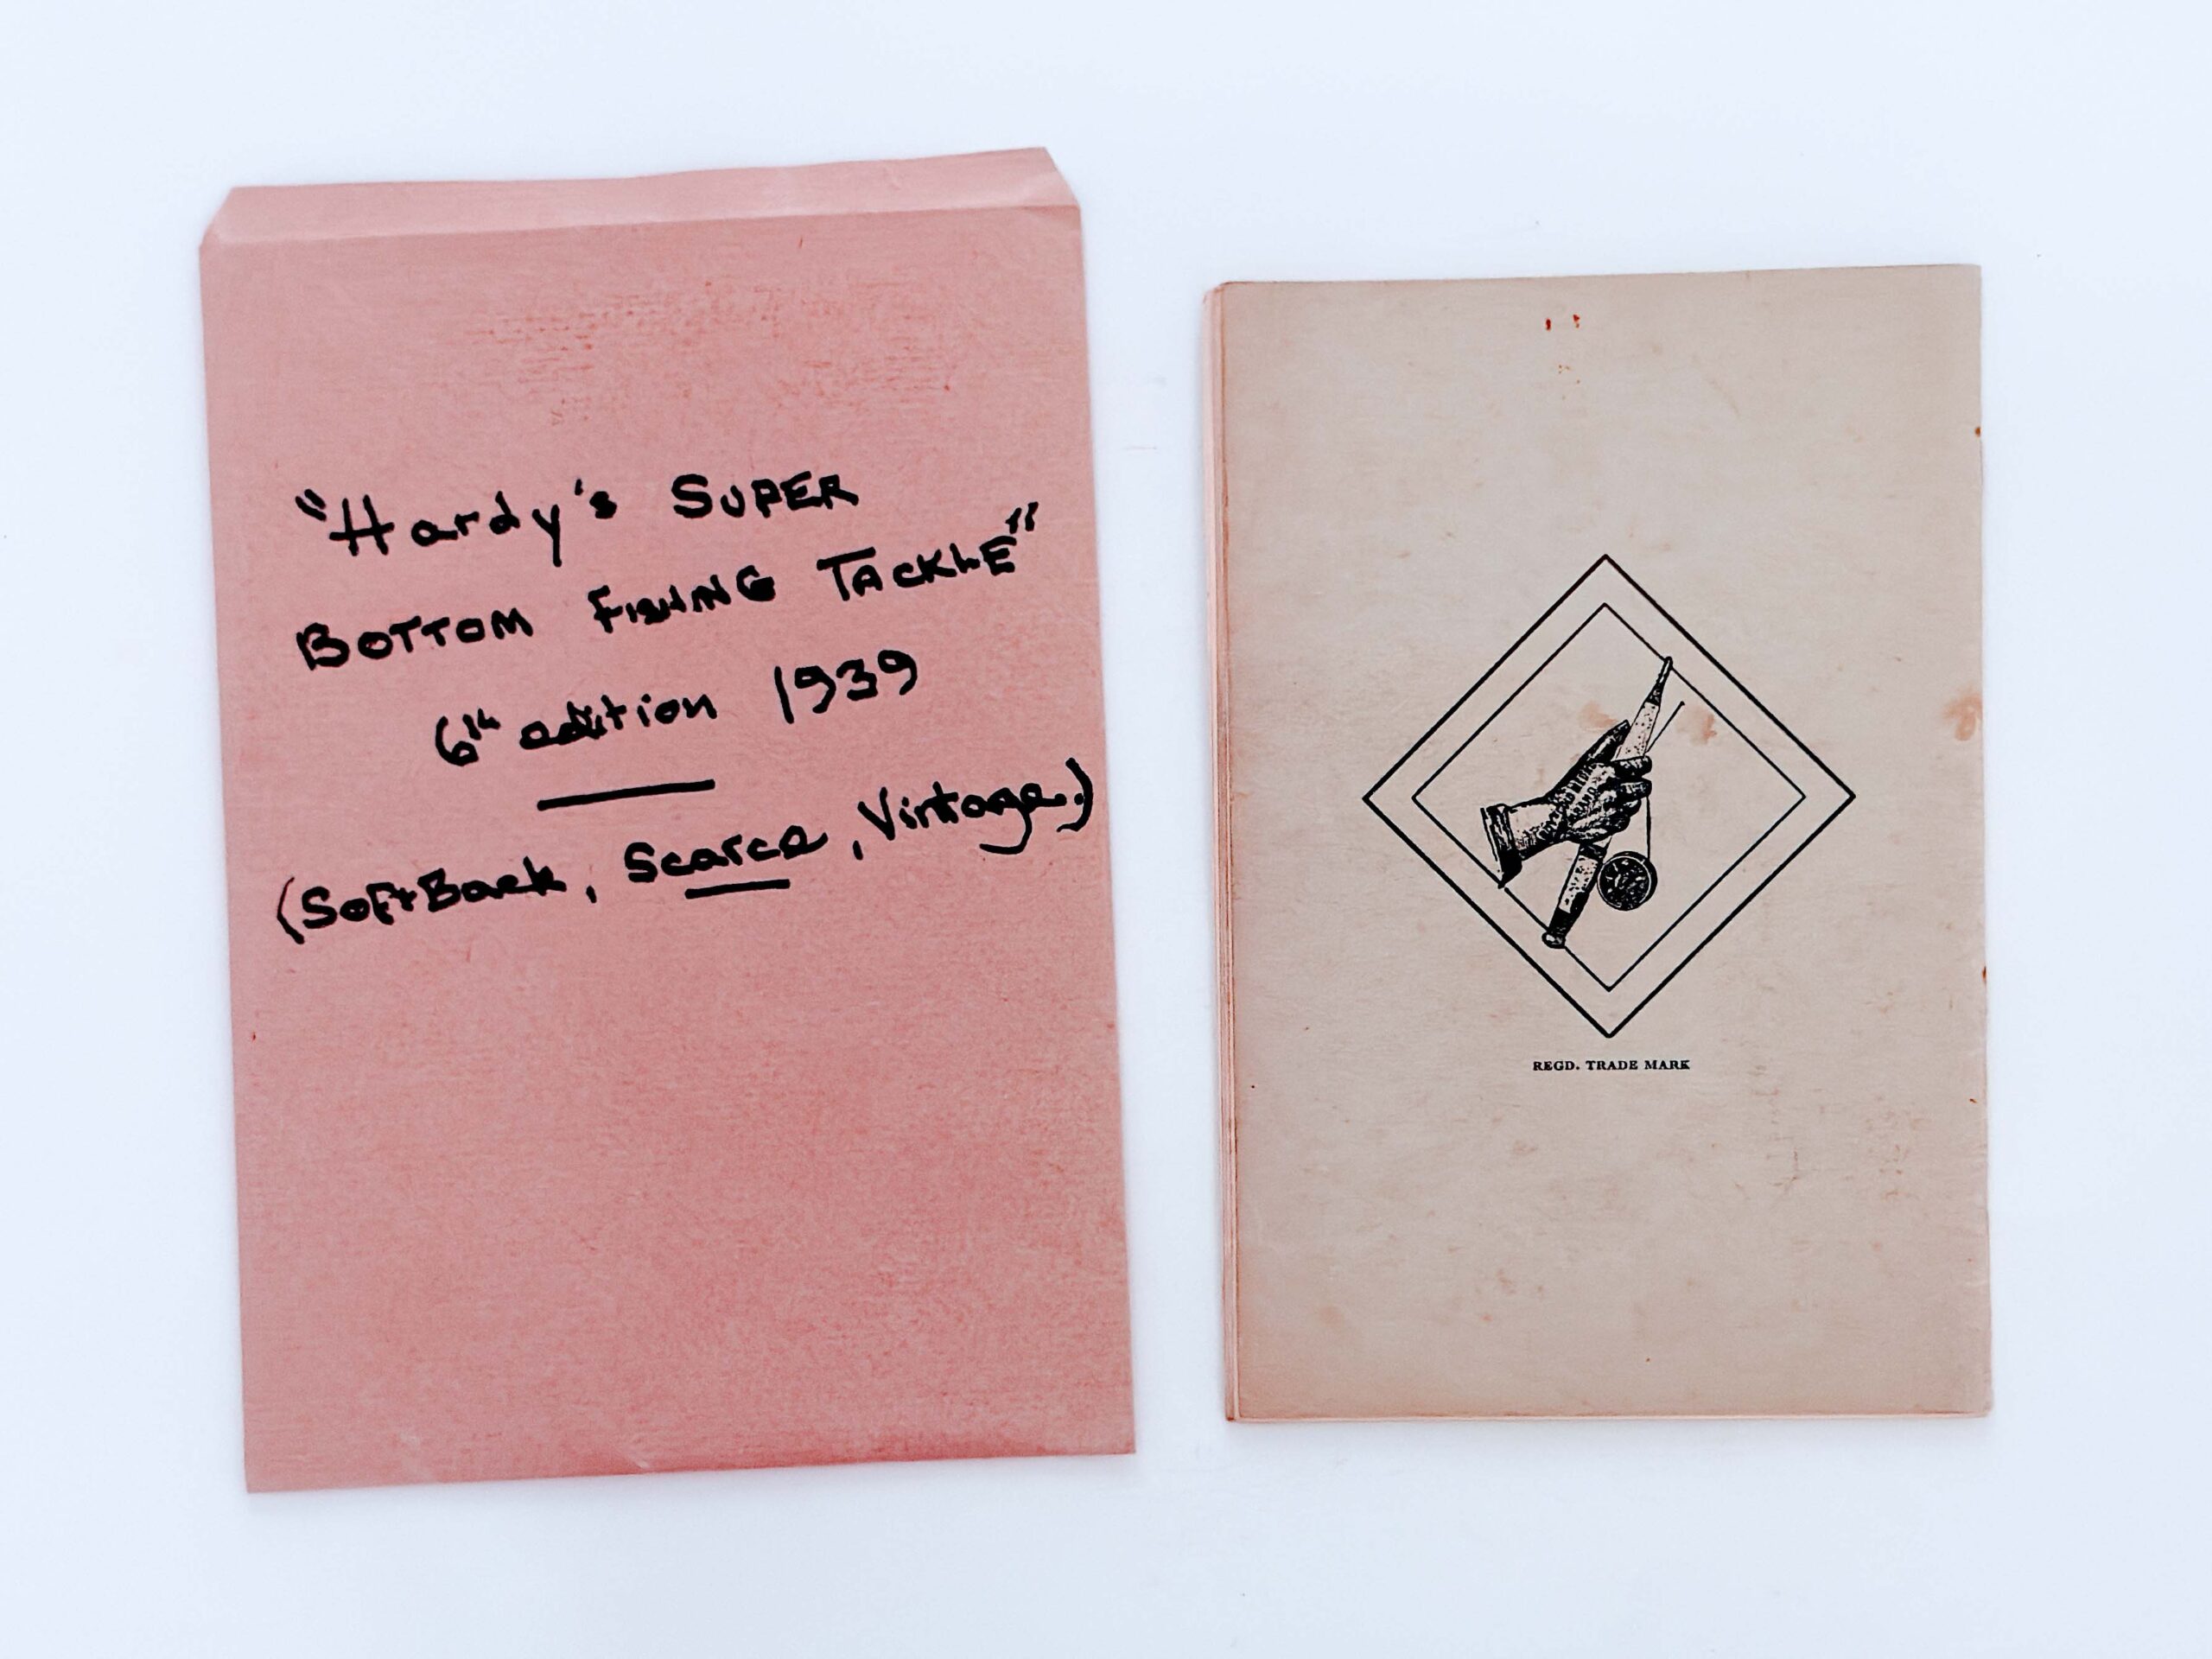 "Hardy's SUPER
BOTTOM FISHING TACKLE"
6th edition 1939
(SoftBack, Scarce, Vintage.)
REGD. TRADE MARK